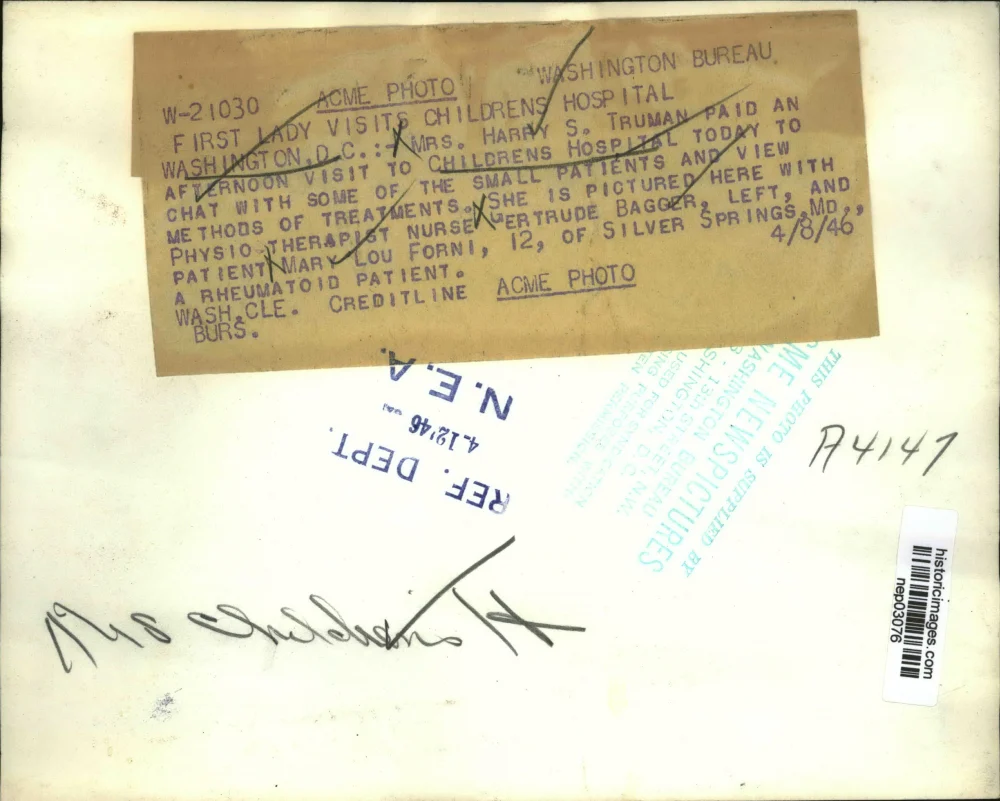 W-21030 ACME PHOTO WASHINGTON BUREAU
FIRST LADY VISITS CHILDRENS HOSPITAL
WASHINGTON, D.C.:- MRS. HARRY S. TRUMAN PAID AN
AFTERNOON VISIT TO CHILDRENS HOSPITAL TODAY TO
CHAT WITH SOME OF THE SMALL PATIENTS AND VIEW
METHODS OF TREATMENTS. SHE IS PICTURED HERE WITH
PHYSIO THERAPIST NURSE GERTRUDE BAGGER, LEFT, AND
PATIENT MARY LOU FORNI, 12, OF SILVER SPRINGS, MD.,
A RHEUMATOID PATIENT. 4/8/46
WASH.CLE. CREDITLINE ACME PHOTO
BURS.
REF. DEPT.
4-12'46
N.E.A.
THIS PHOTO IS SUPPLIED BY
ME NEWSPICTURES
WASHINGTON BUREAU
13TH STREET, N.W.
WASHINGTON, D.C.
A4147
historicimages.com
nep03076
Childrens H